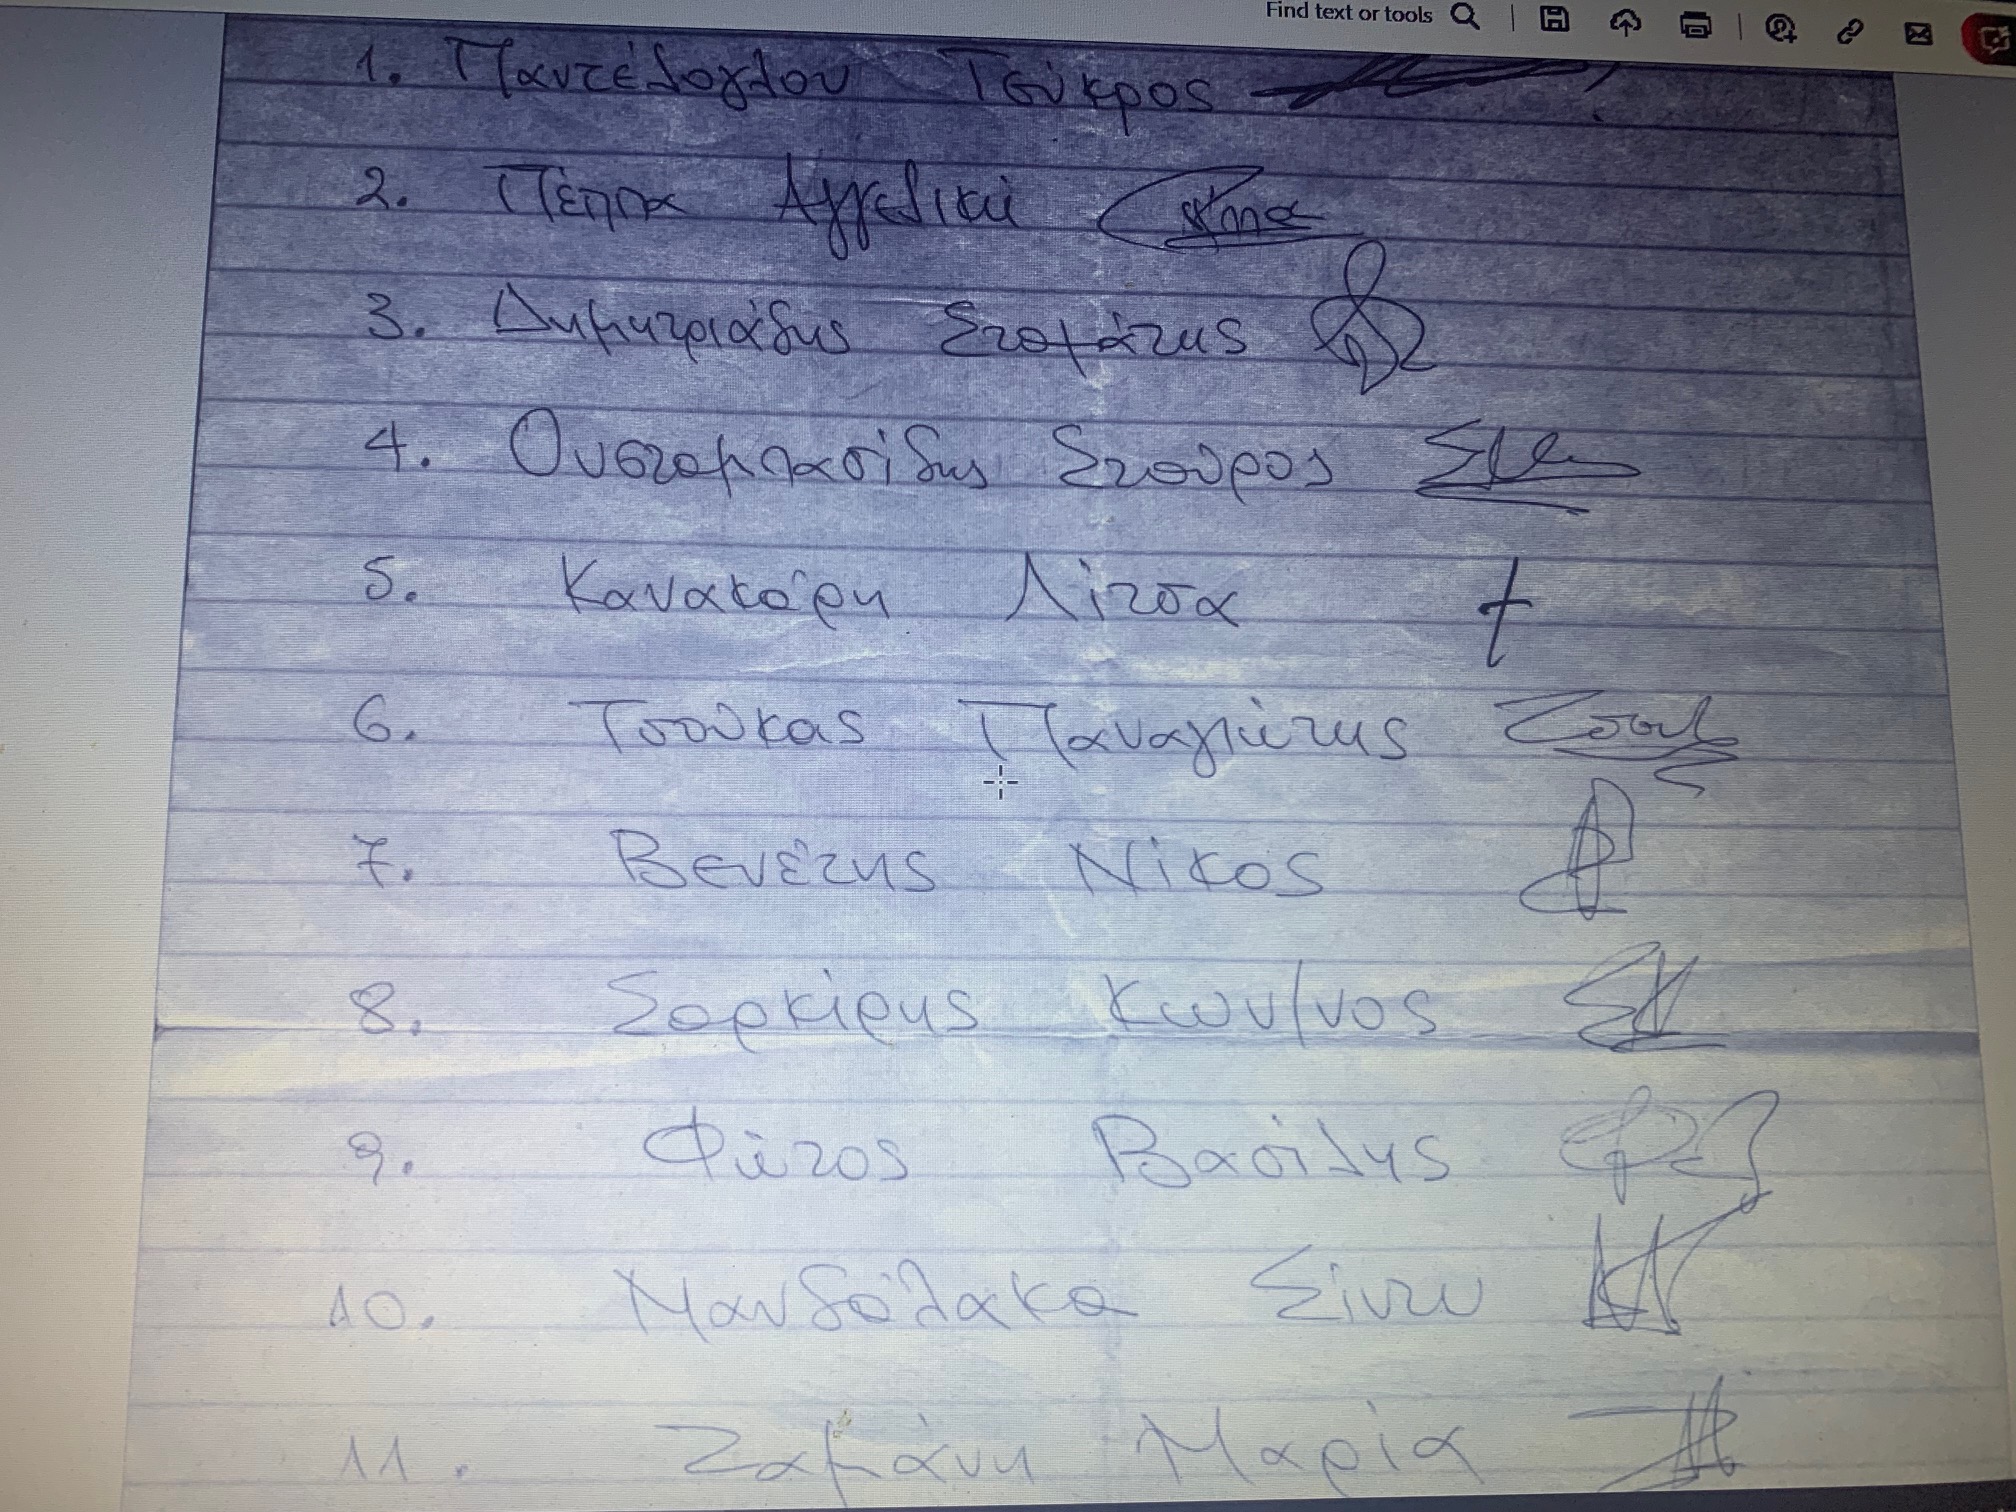 Find text or tools
1. Παντέλογλου Τεύκρος
2. Πέππα Αγγελική
3. Δημητριάδης Σταμάτης
4. Ουσταμπασίδης Σταύρος
5. Κανακάρη Λίτσα
6. Τσούκας Παναγιώτης
7. Βενέτης Νίκος
8. Σαρκίρης Κων/νος
9. Φώτος Βασίλης
10. Μανδάλακα Σίντυ
11. Ζαμάνη Μαρία